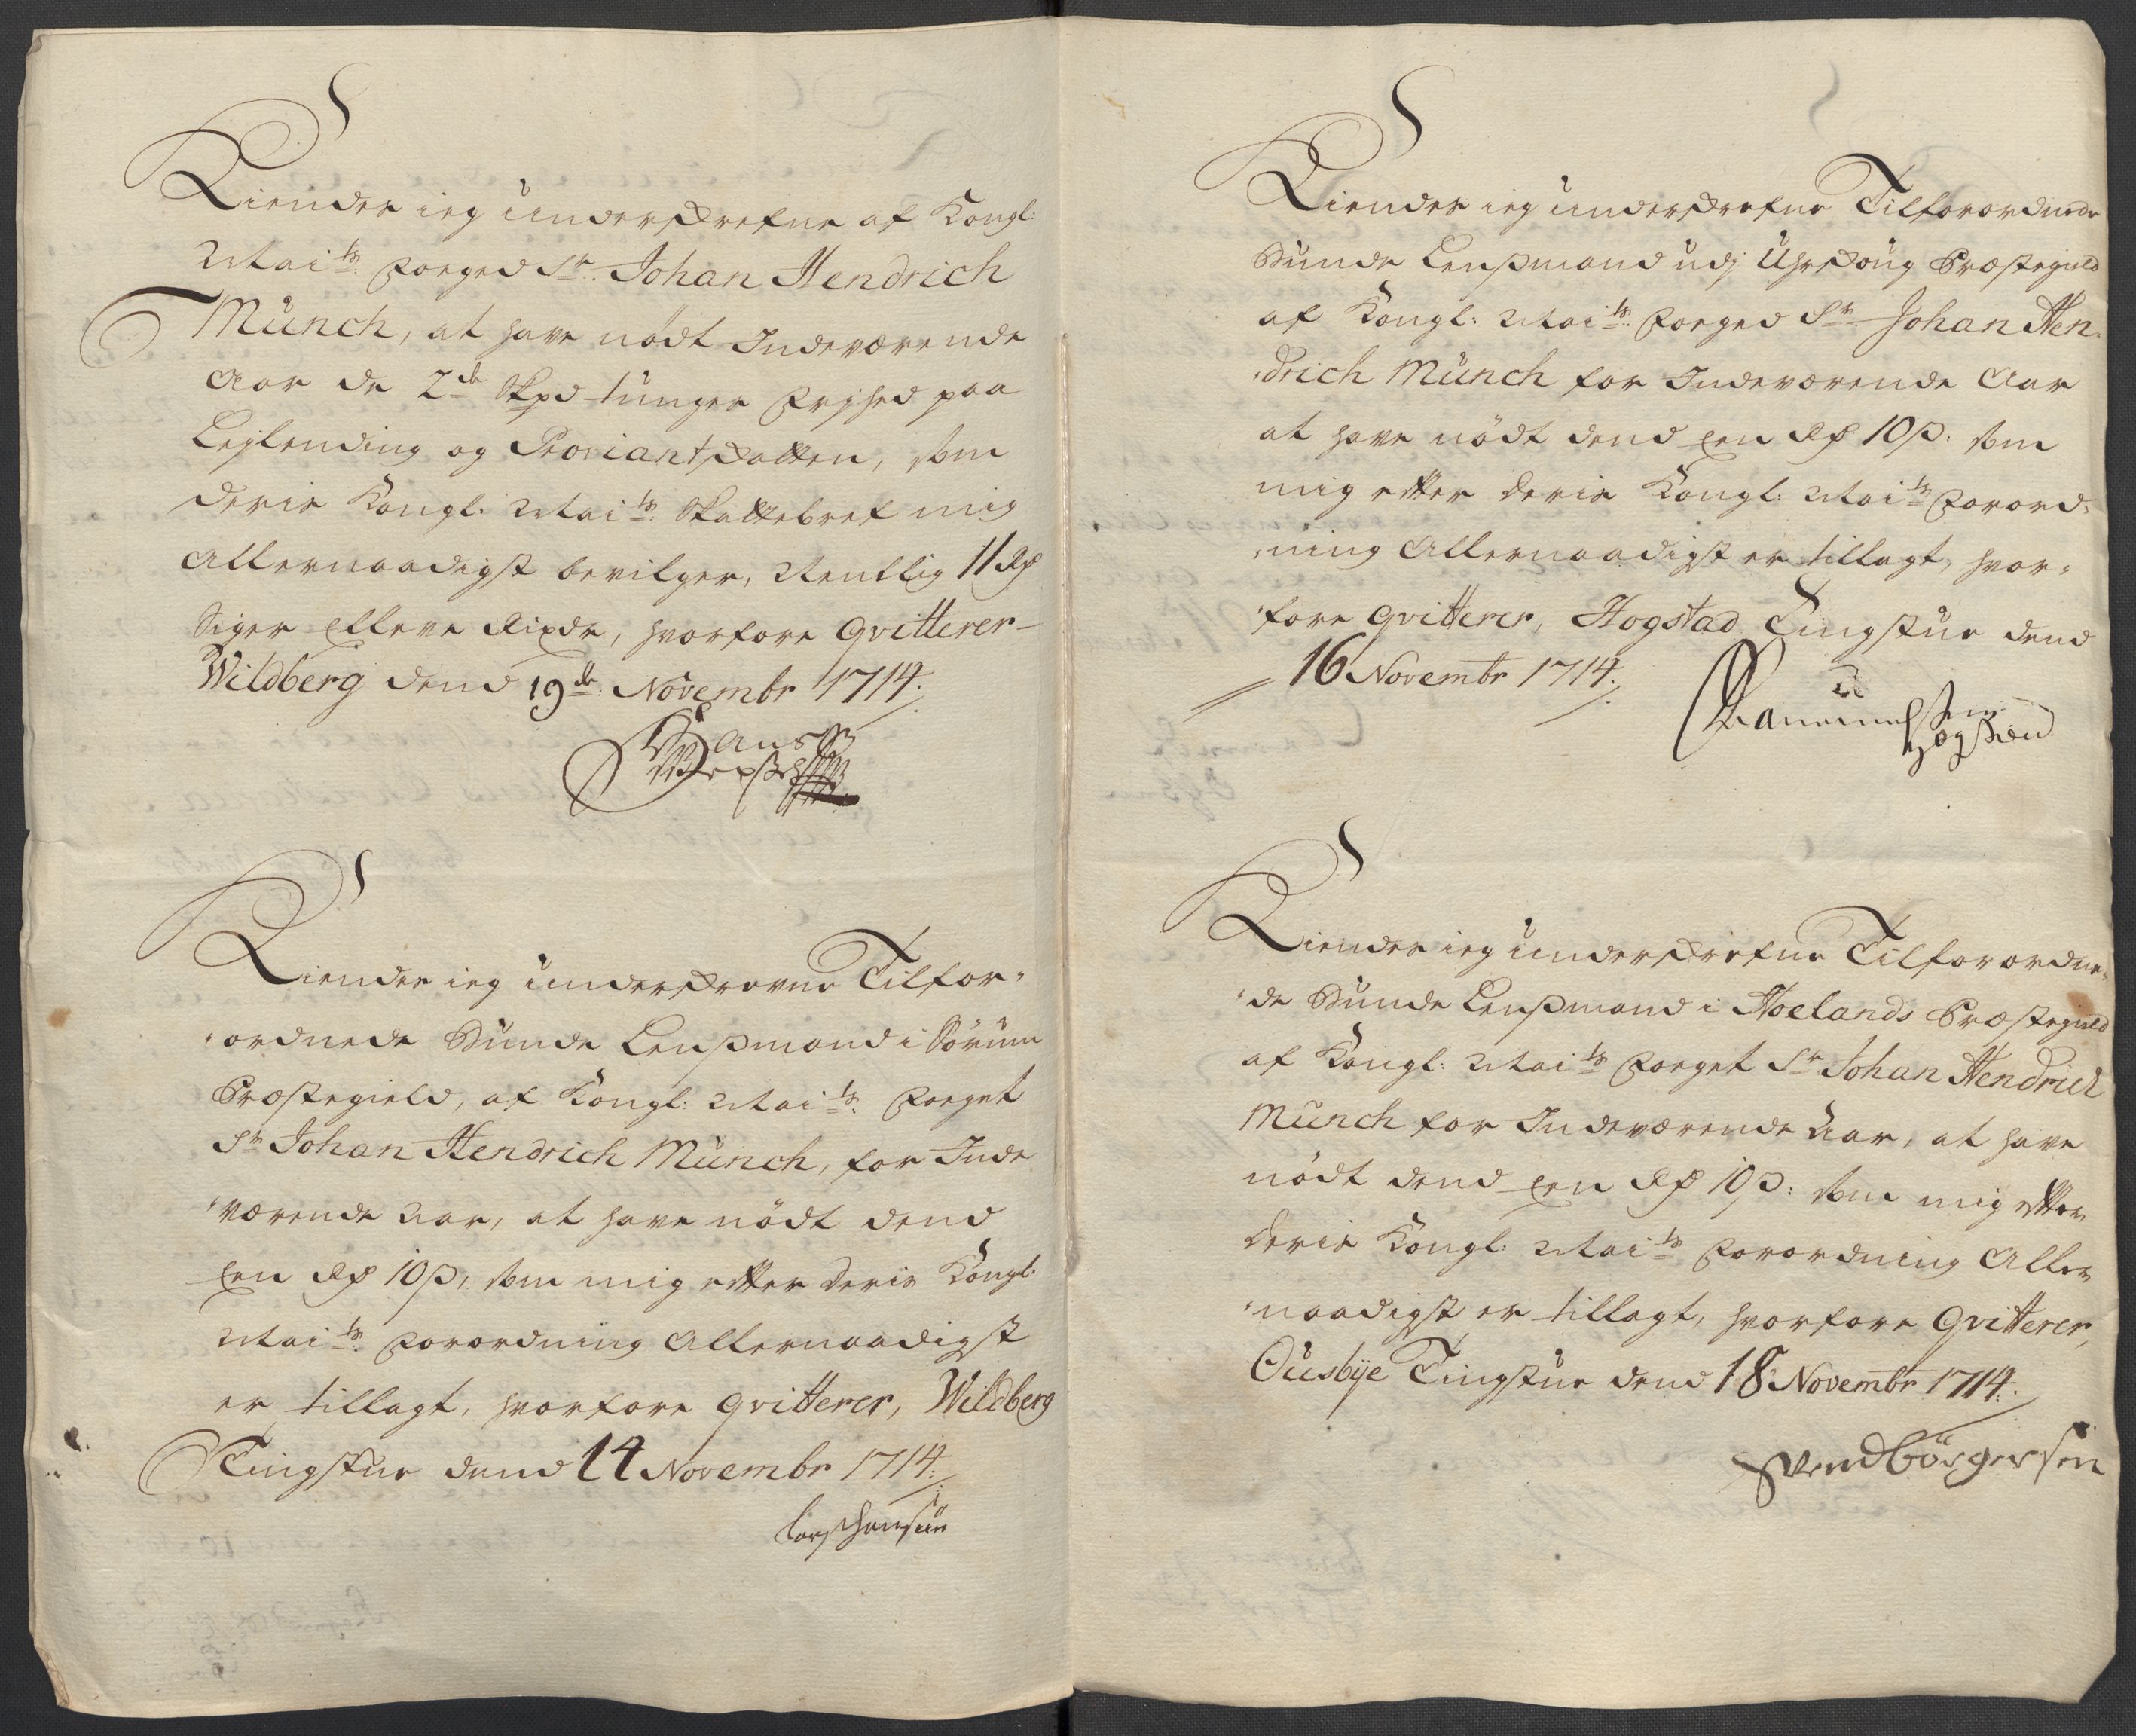 Kiender ieg underskrefne af Kongl:
Maits: Foged Sr: Johan Hendrich
Münch, at have nödt Indeværende
Aar de 2de Skpd tunges Frjhed paa
Lejlending og Proviantskatten, som
Deris Kongl: Maits: Skattebref mig
Allernaadigst bevilger, Nemblig 11 Rd
Siger Elleve Rixdr, hvorfore qvitterer
Wildberg dend 19de Novembr 1714.
Hans
Kiender ieg underskrevne Tilfor-
ordnede Bunde Lensmand i Sörum
Præstegield, af Kongl: Maits: Foget
Sr Johan Hendrich Münch, for Inde
værende Aar, at have nödt dend
Een Rd 10 s, som mig efter Deris Kongl:
Maits: Forordning Allernaadigst
er tillagt, hvorfore qvitterer, Wildberg
Tingstue dend 14 Novembr 1714.
Lars Hansen
Kiender ieg underskrefne Tilforordnede
Bunde Lensmand udj Uhrskoug Præstegield
af Kongl: Maits: Foged Sr Johan Hen-
drich Münch for Indeværende Aar
at have nödt dend Een Rd 10 s: som
mig efter Deris Kongl: Maits Forord-
ning Allernaadigst er tillagt, hvor-
fore qvitterer, Hogstad Tingstue dend
16 Novembr 1714.
Kiender ieg underskrefne Tilforordne-
de Bunde Lensmand i Hoelands Præstegield
af Kongl: Maits Foget Sr Johan Hendrich
Münch for Indeværende Aar, at have
nödt dend Een Rd 10 s: som mig efter
Deris Kongl: Maits Forordning Aller
naadigst er tillagt, hvorfore qvitterer,
Ousbÿe Tingstue dend 18 Novembr 1714.
Svend börgersen